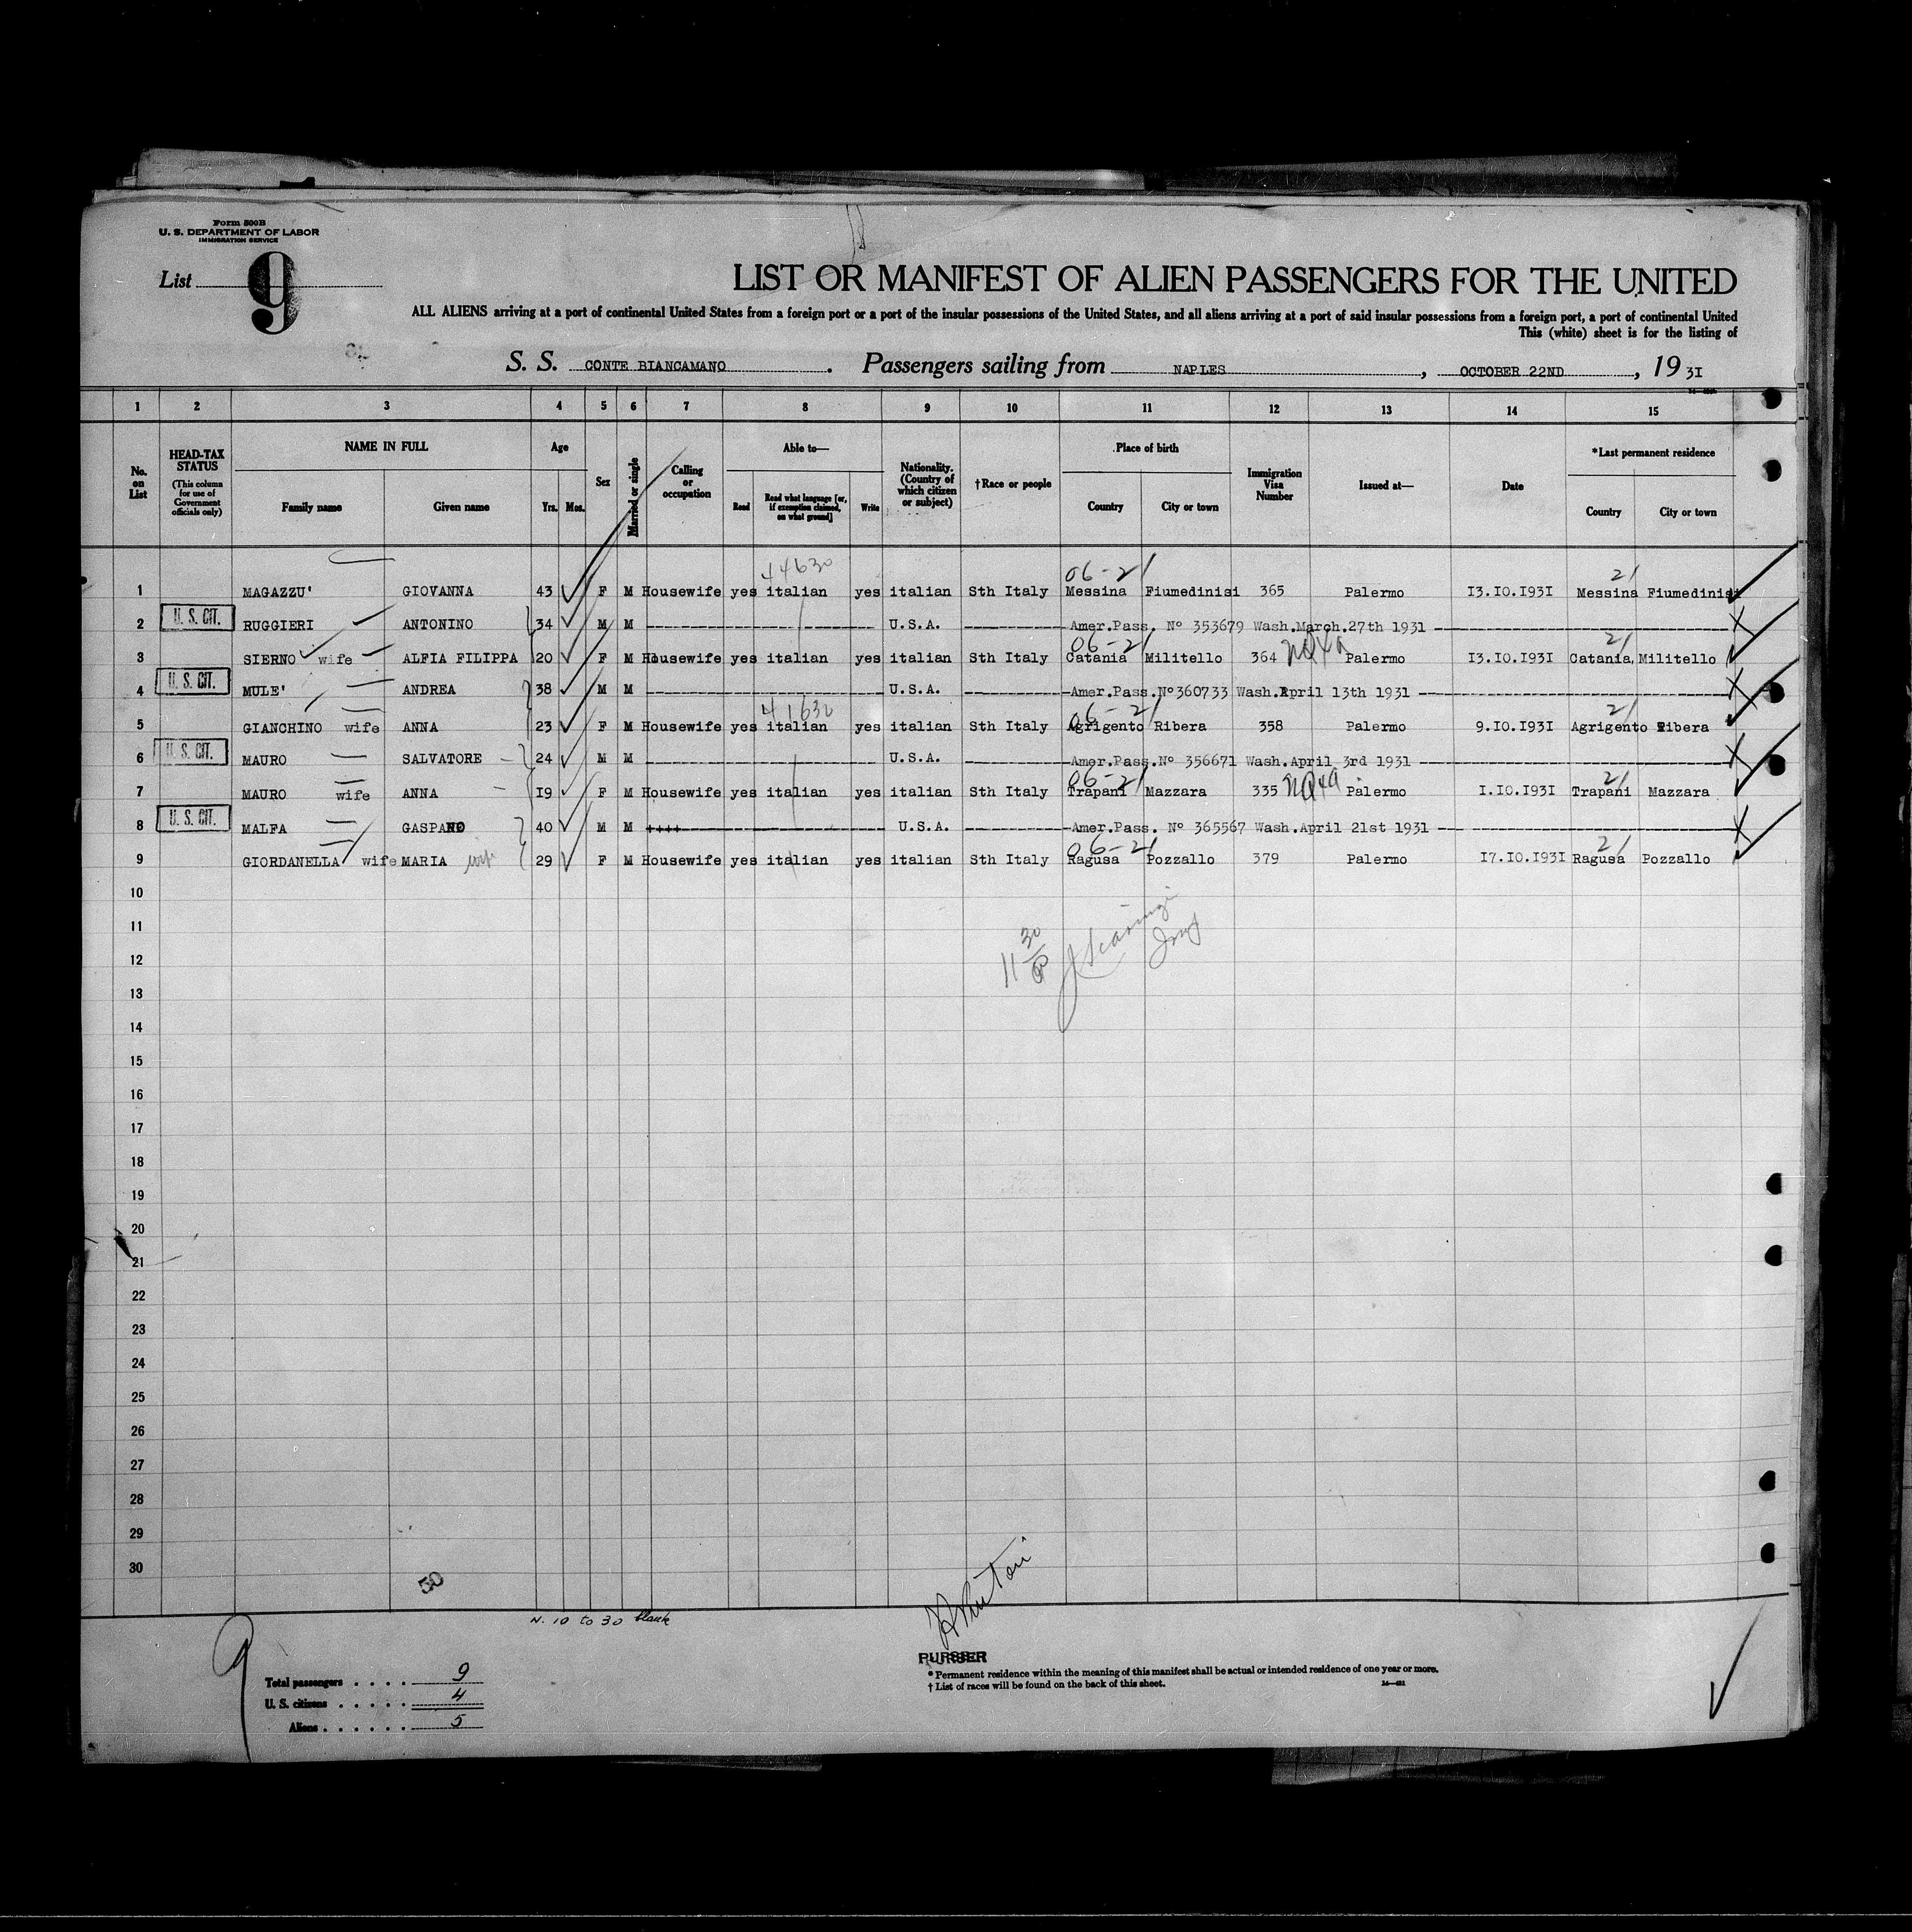 Form 500B
U. S. DEPARTMENT OF LABOR
IMMIGRATION SERVICE
List 9
LIST OR MANIFEST OF ALIEN PASSENGERS FOR THE UNITED
ALL ALIENS arriving at a port of continental United States from a foreign port or a port of the insular possessions of the United States, and all aliens arriving at a port of said insular possessions from a foreign port, a port of continental United
This (white) sheet is for the listing of
S. S. CONTE BIANCAMANO. Passengers sailing from NAPLES, OCTOBER 22ND, 19 31
1 2 3 4 5 6 7 8 9 10 11 12 13 14 15
No. on List
HEAD-TAX STATUS (This column for use of Government officials only)
NAME IN FULL
Family name Given name
Age
Yrs. Mos.
Sex
Married or single
Calling or occupation
Able to—
Read Read what language [or, if exemption claimed, on what ground] Write
Nationality. (Country of which citizen or subject)
†Race or people
Place of birth
Country City or town
Immigration Visa Number
Issued at—
Date
*Last permanent residence
Country City or town
44630 06-21 21
1 MAGAZZU' GIOVANNA 43 F M Housewife yes italian yes italian Sth Italy Messina Fiumedinisi 365 Palermo 13.10.1931 Messina Fiumedinisi
U. S. CIT. 2 RUGGIERI ANTONINO 34 M M U.S.A. Amer.Pass. Nº 353679 Wash.March.27th 1931
06-21 21
3 SIERNO wife ALFIA FILIPPA 20 F M Housewife yes italian yes italian Sth Italy Catania Militello 364 Palermo 13.10.1931 Catania, Militello
U. S. CIT. 4 MULE' ANDREA 38 M M U.S.A. Amer.Pass.Nº 360733 Wash.April 13th 1931
41630 06-21 21
5 GIANCHINO wife ANNA 23 F M Housewife yes italian yes italian Sth Italy Agrigento Ribera 358 Palermo 9.10.1931 Agrigento Ribera
U. S. CIT. 6 MAURO SALVATORE 24 M M U.S.A. Amer.Pass.Nº 356671 Wash.April 3rd 1931
06-21 21
7 MAURO wife ANNA 19 F M Housewife yes italian yes italian Sth Italy Trapani Mazzara 335 Palermo 1.10.1931 Trapani Mazzara
U. S. CIT. 8 MALFA GASPARO 40 M M ++++ U.S.A. Amer.Pass. Nº 365567 Wash.April 21st 1931
06-21 21
9 GIORDANELLA wife MARIA wife 29 F M Housewife yes italian yes italian Sth Italy Ragusa Pozzallo 379 Palermo 17.10.1931 Ragusa Pozzallo
10
11
12
13
14
15
16
17
18
19
20
21
22
23
24
25
26
27
28
29
30
50
N. 10 to 30 blank
PURSER
* Permanent residence within the meaning of this manifest shall be actual or intended residence of one year or more.
† List of races will be found on the back of this sheet.
9
Total passengers . . . . 9
U. S. citizens . . . . . 4
Aliens . . . . . . 5